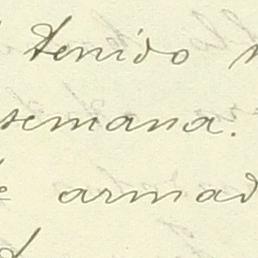 tenido
semana.
armad